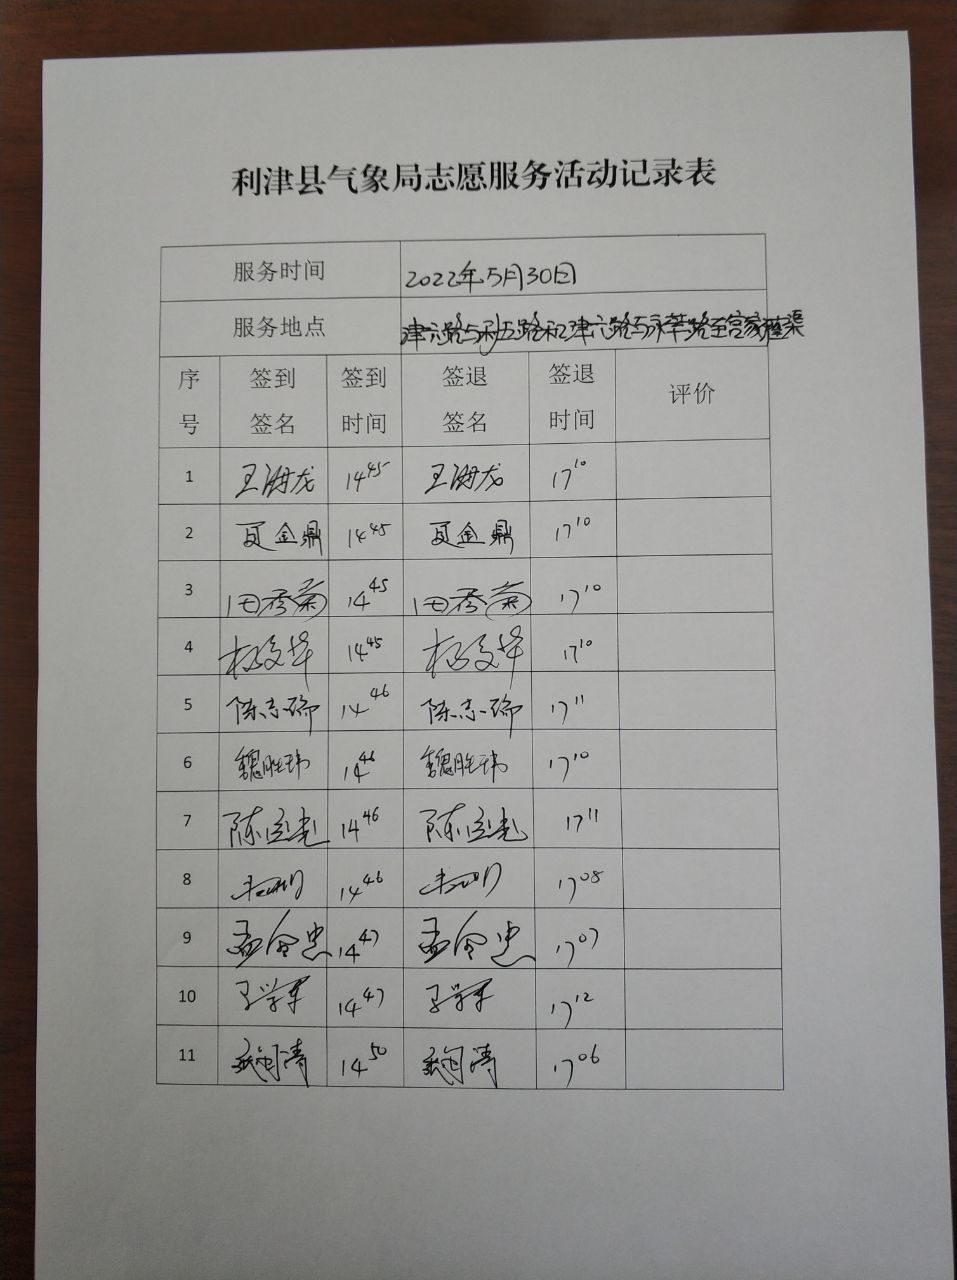 利津县气象局志愿服务活动记录表
服务时间 2022年5月30日
服务地点 津六路与利五路和津六路与永莘路至宫家灌渠
序号 签到签名 签到时间 签退签名 签退时间 评价
1 王海龙 14 45 王海龙 17 10
2 夏金鼎 14 45 夏金鼎 17 10
3 田秀菊 14 45 田秀菊 17 10
4 杨文华 14 45 杨文华 17 10
5 陈志瑞 14 46 陈志瑞 17 11
6 魏胜玮 14 46 魏胜玮 17 10
7 陈 14 46 陈 17 11
8 14 46 17 08
9 孟令忠 14 47 孟令忠 17 07
10 王学军 14 47 王学军 17 12
11 14 50 17 06